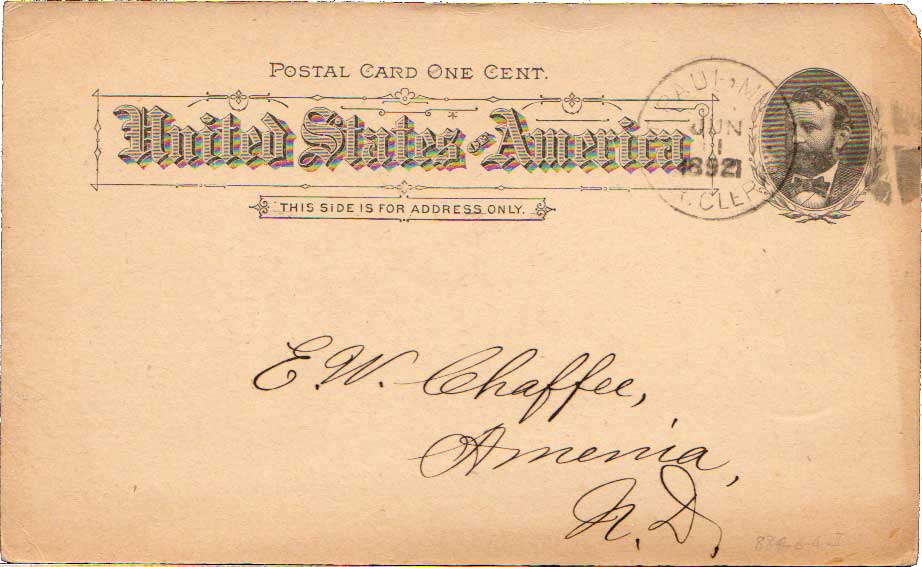 POSTAL CARD ONE CENT.
United States OF America
THIS SIDE IS FOR ADDRESS ONLY.
PAUL. M
JUN
1
1892
T. CLERK
E. W. Chaffee,
Amenia,
N. D.